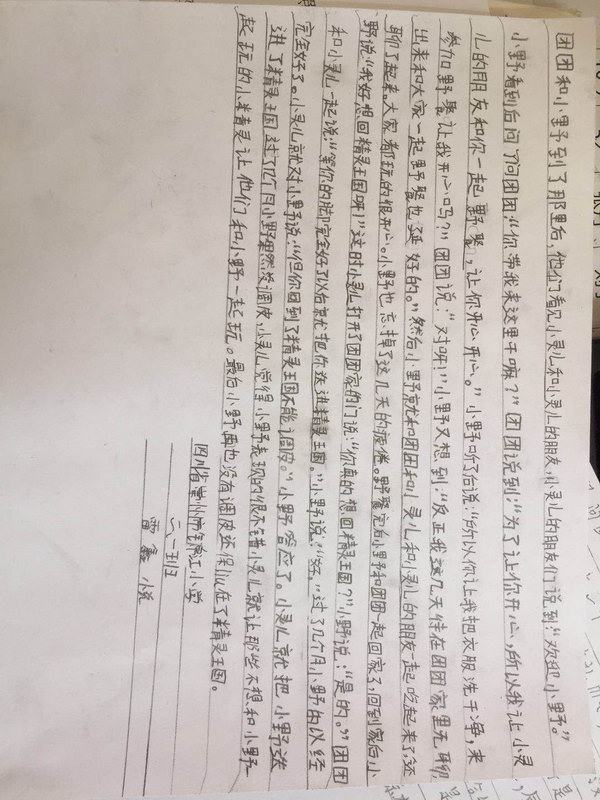 团团和小野到了那里后,他们看见小灵儿和小灵儿的朋友,小灵儿的朋友们说到“欢迎小野。”
小野看到后问了问团团:“你带我来这里干嘛?”团团说到:“为了让你开心,所以我让小灵
儿的朋友和你一起野餐,让你开心开心。”小野听了后说:“所以你让我把衣服洗干净,来
参加野餐让我开心吗?”团团说:“对呀!”小野又想到“反正我这几天待在团团家里无聊
出来和大家一起野餐也延好的。”然后小野就和团团和小灵儿和小灵儿的朋友一起吃起来了还
聊了起来。大家都玩的很开心。小野也忘掉了这几天的疲倦。野餐完后小野和团团一起回家了,回到家后小
野说:“我好想回精灵王国呀!”这时小灵儿打开了团团家的门说:“你真的想回精灵王国?”小野说:“是的。”团团
和小灵儿一起说:“等你的脚完全好了以后就把你送进精灵王国。”小野说:“好。”过了几个月小野的以经
完全好了。小灵儿就对小野说:“但你回到了精灵王国不能调皮。”小野答应了。小灵儿就把小野送
进了精灵王国过了几个月小野果然没调皮,小灵儿觉得小野表现的很不错小灵儿就让那些不想和小野一
起玩的小精灵让他们和小野一起玩。最后小野再也没有调皮还保在了精灵王国。
四川省崇州市江小学
六一班
雷鑫